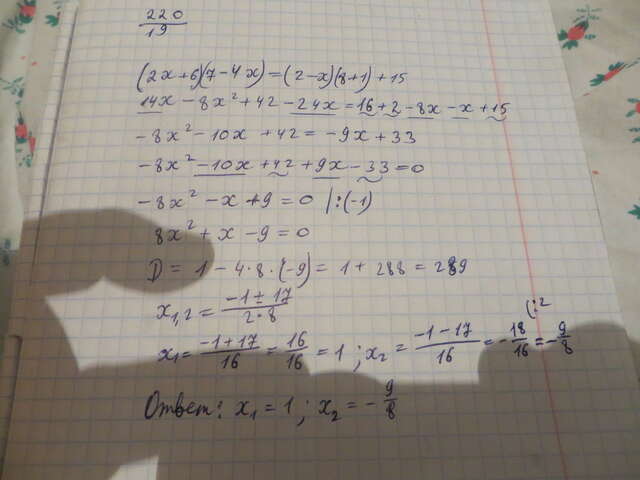 220
19
(2x+6)(7-4x)=(2-x)(8+1)+15
14x-8x²+42-24x=16+2-8x-x+15
-8x²-10x+42=-9x+33
-8x²-10x+42+9x-33=0
-8x²-x+9=0 |:(-1)
8x²+x-9=0
D=1-4·8·(-9)=1+288=289
x1,2=(-1±17)/(2·8)
(:2
x1=(-1+17)/16=16/16=1; x2=(-1-17)/16=-18/16=-9/8
Ответ: x1=1; x2=-9/8